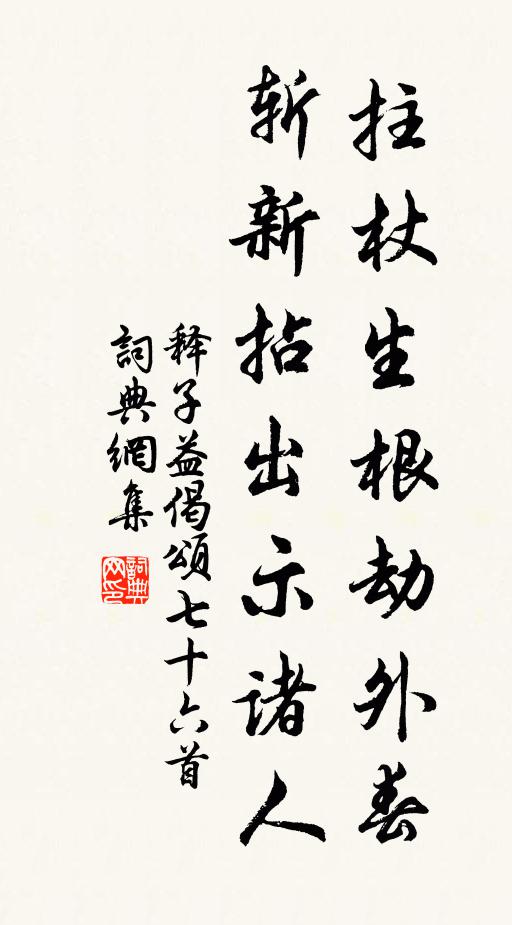 拄杖生根劫外春
斬新拈出示諸人
释子益偈頌七十六首
詞典網集
詞典
网印